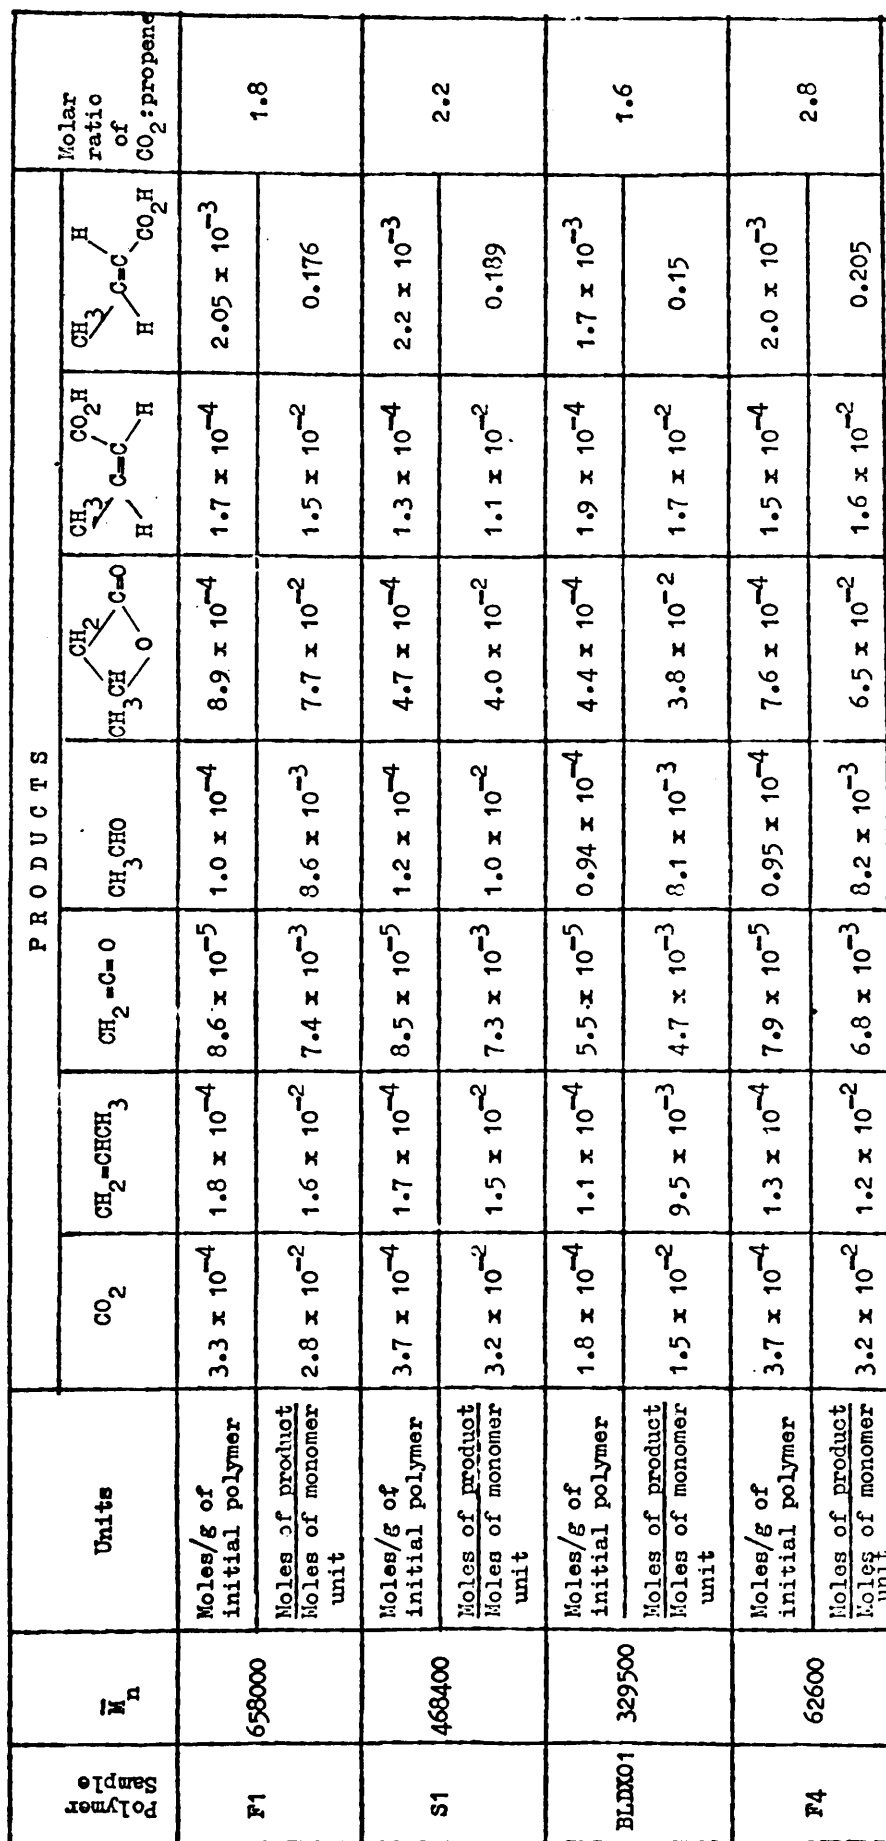 Polymer Sample
M̄n
Units
PRODUCTS
Molar ratio of CO2:propene
CO2
CH2=CHCH3
CH2=C=O
CH3CHO
CH2
CH3CH C=O
O
CH3 CO2H
C=C
H H
CH3 H
C=C
H CO2H
F1
658000
Moles/g of initial polymer
3.3 x 10^-4
1.8 x 10^-4
8.6 x 10^-5
1.0 x 10^-4
8.9 x 10^-4
1.7 x 10^-4
2.05 x 10^-3
1.8
Moles of product
Moles of monomer unit
2.8 x 10^-2
1.6 x 10^-2
7.4 x 10^-3
8.6 x 10^-3
7.7 x 10^-2
1.5 x 10^-2
0.176
S1
468400
Moles/g of initial polymer
3.7 x 10^-4
1.7 x 10^-4
8.5 x 10^-5
1.2 x 10^-4
4.7 x 10^-4
1.3 x 10^-4
2.2 x 10^-3
2.2
Moles of product
Moles of monomer unit
3.2 x 10^-2
1.5 x 10^-2
7.3 x 10^-3
1.0 x 10^-2
4.0 x 10^-2
1.1 x 10^-2
0.189
BLDX01
329500
Moles/g of initial polymer
1.8 x 10^-4
1.1 x 10^-4
5.5 x 10^-5
0.94 x 10^-4
4.4 x 10^-4
1.9 x 10^-4
1.7 x 10^-3
1.6
Moles of product
Moles of monomer unit
1.5 x 10^-2
9.5 x 10^-3
4.7 x 10^-3
8.1 x 10^-3
3.8 x 10^-2
1.7 x 10^-2
0.15
F4
62600
Moles/g of initial polymer
3.7 x 10^-4
1.3 x 10^-4
7.9 x 10^-5
0.95 x 10^-4
7.6 x 10^-4
1.5 x 10^-4
2.0 x 10^-3
2.8
Moles of product
Moles of monomer unit
3.2 x 10^-2
1.2 x 10^-2
6.8 x 10^-3
8.2 x 10^-3
6.5 x 10^-2
1.6 x 10^-2
0.205